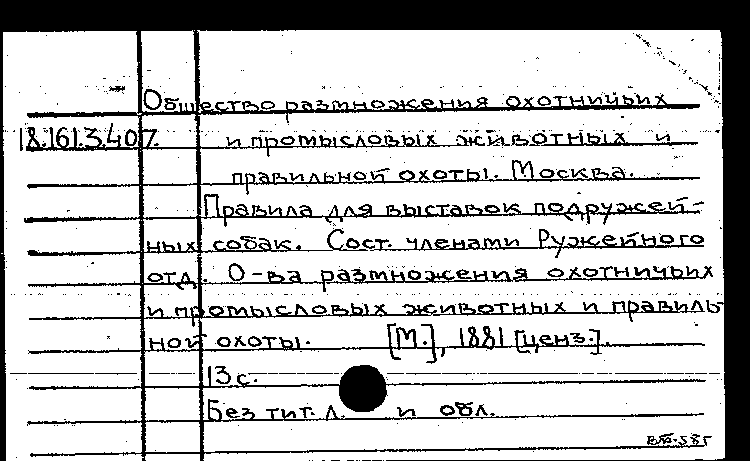 Общество размножения охотничьих
18.161.3.407. и промысловых животных и
правильной охоты. Москва.
Правила для выставок подружей-
ных собак. Сост. членами Ружейного
отд. О-ва размножения охотничьих
и промысловых животных и правиль-
ной охоты. [М.], 1881 [ценз.].
13 с.
Без тит. л. и обл.